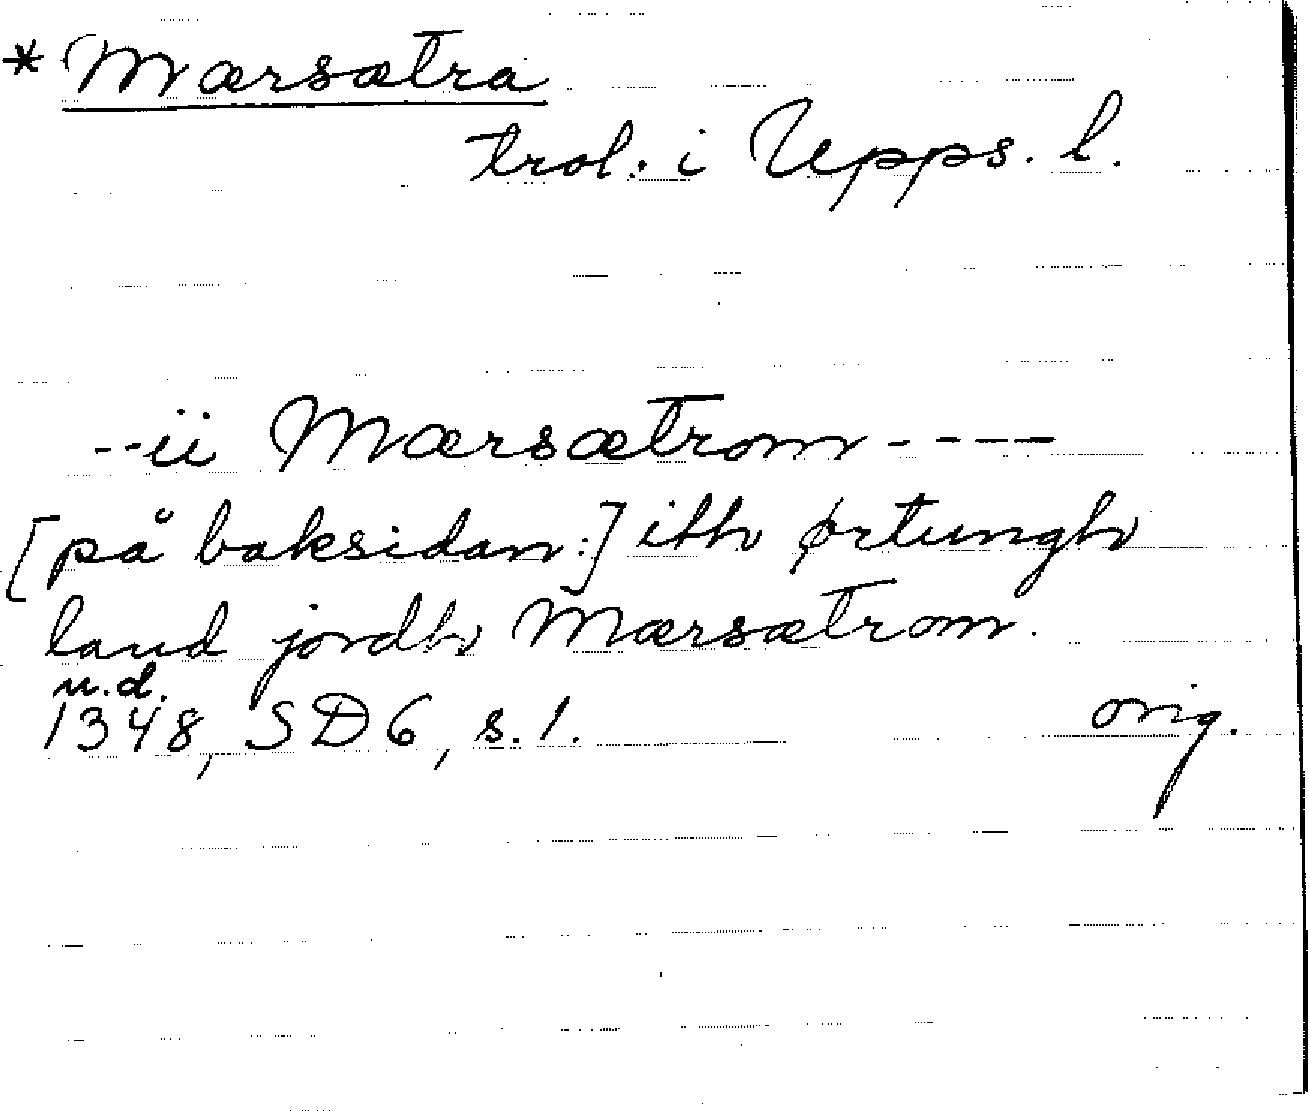 * Mærsætra
trol. i Upps. l.
--ii Mærsætrom----
[på baksidan:] ith ørtungh
land jordh Mærsætrom.
u.d.
1348, SD6, s.1. orig.